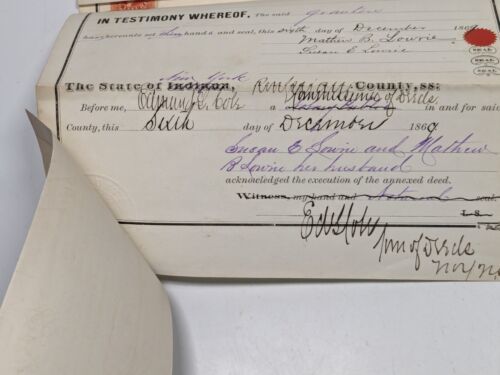 IN TESTIMONY WHEREOF, The said grantors
have hereunto set their hands and seal, this sixth day of December 1869
Mathew B. Lowrie SEAL
Susan E Lowrie SEAL
SEAL
New York
The State of Indiana, County, ss:
Before me, of Deeds in and for said
County, this Sixth day of December 1869
Susan E Lowrie and Mathew
B Lowrie her husband
acknowledged the execution of the annexed deed.
Witness, my hand and Notarial seal.
L.S.
Com of Deeds